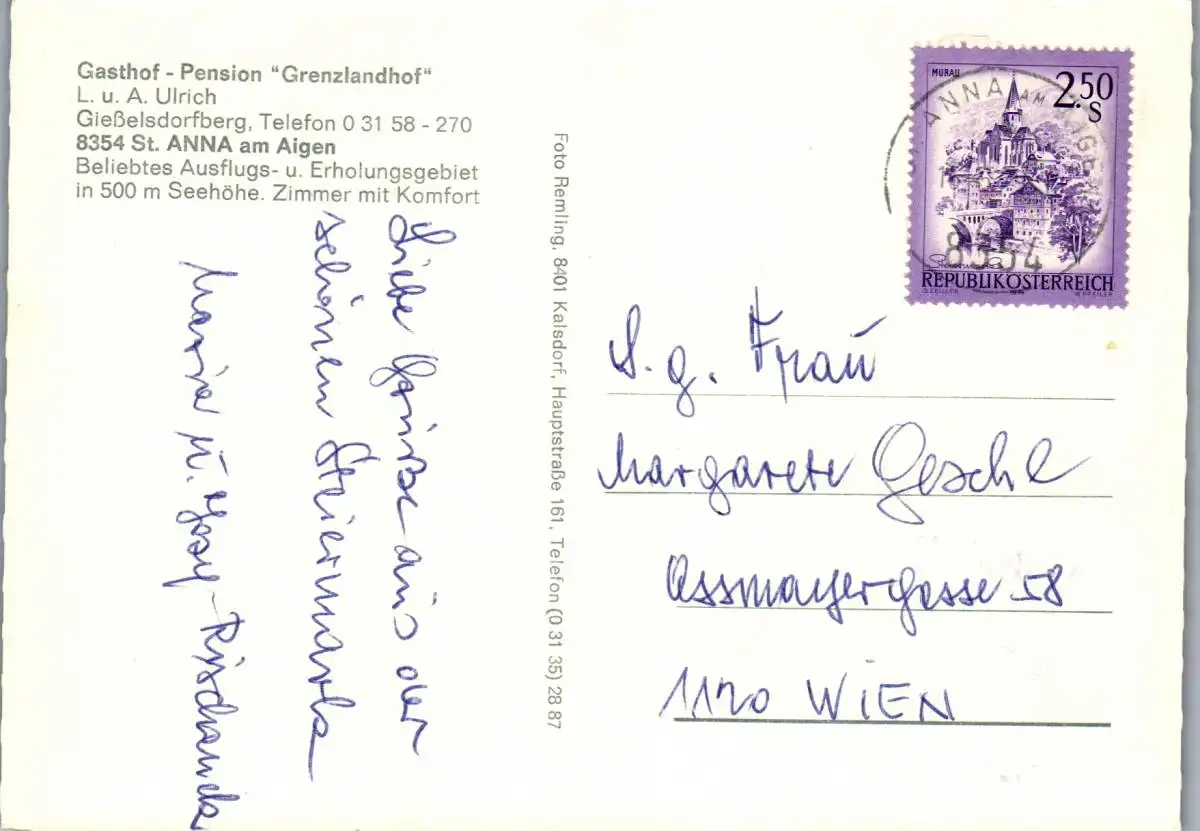 Gasthof - Pension "Grenzlandhof"
L. u. A. Ulrich
Gießelsdorfberg, Telefon 0 31 58 - 270
8354 St. ANNA am Aigen
Beliebtes Ausflugs- u. Erholungsgebiet
in 500 m Seehöhe. Zimmer mit Komfort
Liebe Grüße aus der
schönen Steiermark
Maria u.
Foto Remling, 8401 Kalsdorf, Hauptstraße 161, Telefon (0 31 35) 28 87
MURAU
2.50
S
Steiermark
REPUBLIK ÖSTERREICH
O. ZEILLER
ANNA AM AIGEN
8354
S. g. Frau
Margarete Geschl
Assmayergasse 58
1120 WIEN